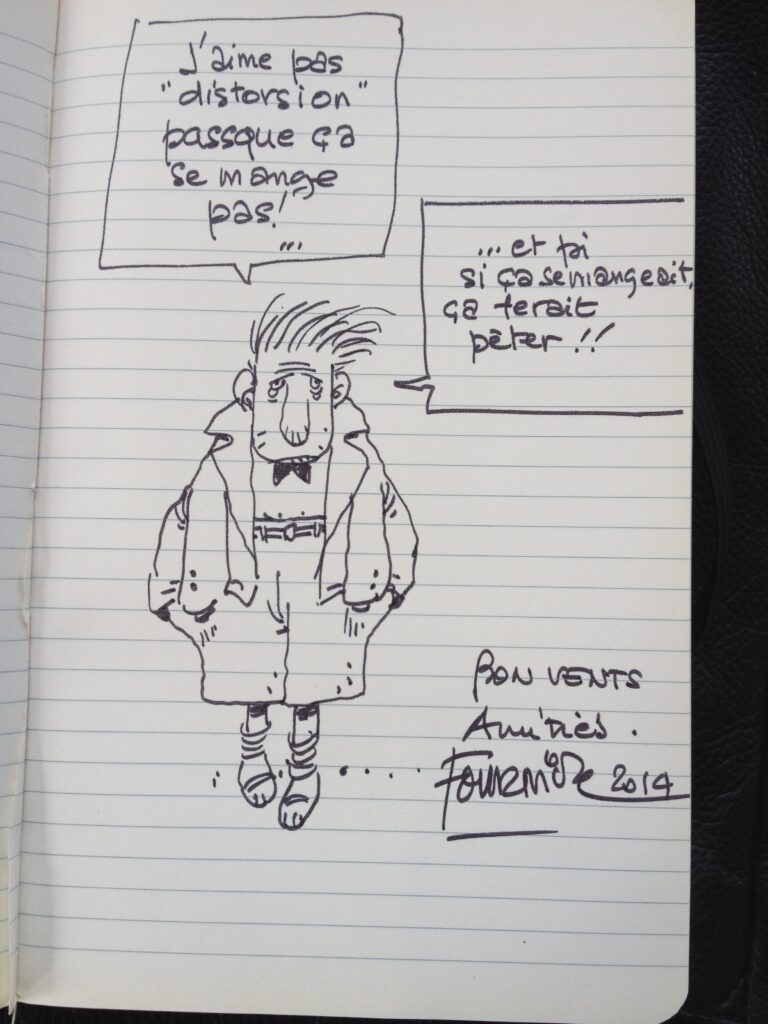 J'aime pas
"distorsion"
passque ça
se mange
pas!
...
...et pi
si ça se mangeait,
ça ferait
pèter !!
BON VENTS
Amitiés.
FOURNIER 2014